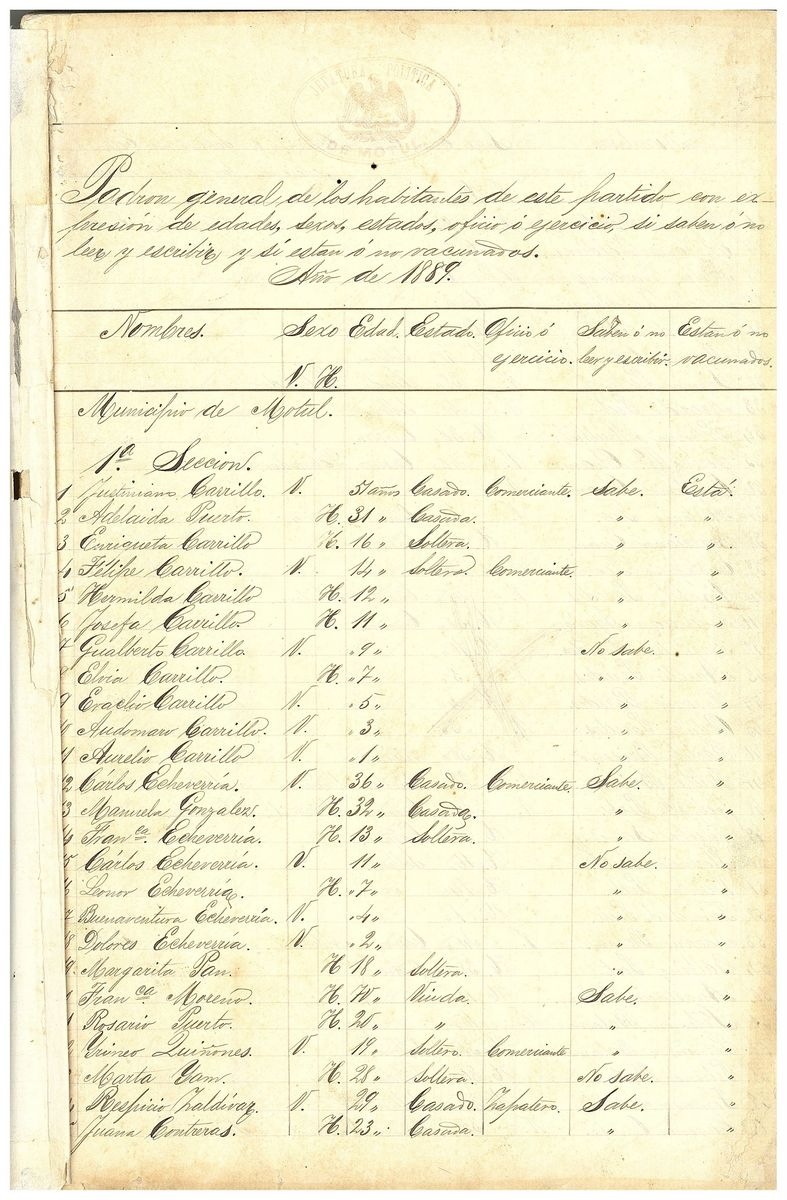 JEFATURA POLITICA
DE MOTUL
Padron general, de los habitantes de este partido con ex-
presión de edades, sexos, estados, oficio ó ejercicio, si saben ó no
leer y escribir y sí estan ó no vacunados.
Año de 1889.
Nombres. Sexo Edad. Estado. Oficio ó Saben ó no Estan ó no
ejercicio. leer y escribir. vacunados.
V. H.
Municipio de Motul.
1.ª Seccion.
1 Justiniano Carrillo. V. 51 años Casado. Comerciante. Sabe. Está.
2 Adelaida Puerto. H. 31 " Casada. " "
3 Enriqueta Carrillo H. 16 " Soltera. " "
4 Félipe Carrillo. V. 14 " Soltero. Comerciante. " "
5 Hermilda Carrillo H. 12 " " "
6 Josefa Carrillo H. 11 " " "
7 Gualberto Carrillo V. " 9 " No sabe. "
8 Elvia Carrillo. H. " 7 " " " "
9 Eraclio Carrillo V. " 5 " " "
0 Audomaro Carrillo. V. " 3 " " "
1 Aurelio Carrillo V. " 1 " " "
2 Cárlos Echeverría. V. 36 " Casado. Comerciante. Sabe. "
3 Manuela Gonzalez. H. 32 " Casada. " "
4 Fran.ca Echeverría. H. 13 " Soltera. " "
5 Cárlos Echeverría V. 11 " No sabe. "
6 Leonor Echeverría. H. " 7 " " "
7 Buenaventura Echeverría. V. " 4 " " "
8 Dolores Echeverría. V. " 2 " " "
9. Margarita Pan. H 18 " Soltera. " "
Fran.ca Moreno. H. 70 " Viuda. Sabe. "
1 Rosario Puerto. H. 20 " " " "
2 Yrineo Quiñones. V. 19 " Soltero. Comerciante " "
Marta Yam. H. 28 " Soltera. No sabe. "
Respicio Zaldívar V. 29 " Casado. Zapatero. Sabe. "
Juana Contreras. H. 23 " Casada. " "